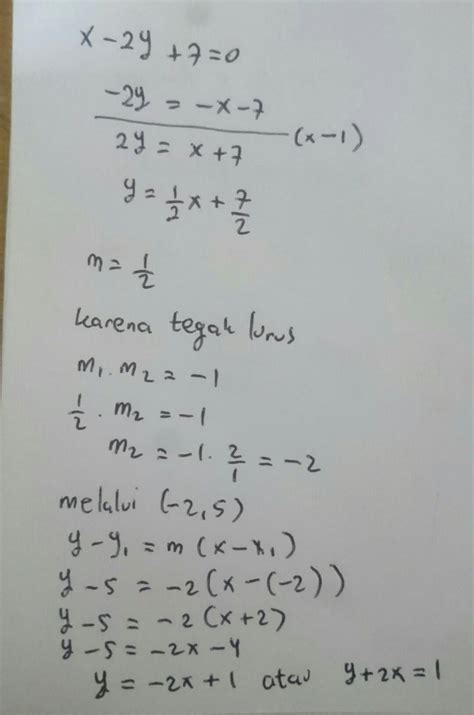 x - 2y + 7 = 0
-2y = -x - 7
2y = x + 7 (x-1)
y = 1/2 x + 7/2
m = 1/2
karena tegak lurus
m₁ . m₂ = -1
1/2 . m₂ = -1
m₂ = -1 . 2/1 = -2
melalui (-2,5)
y - y₁ = m (x - x₁)
y - 5 = -2 (x - (-2))
y - 5 = -2 (x + 2)
y - 5 = -2x - 4
y = -2x + 1 atau y + 2x = 1